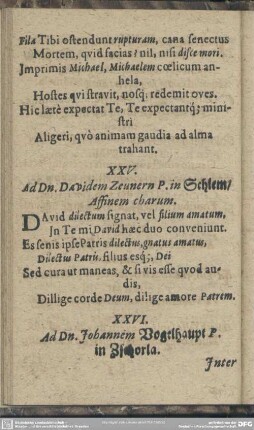 Fila Tibi ostendunt rupturam, cana senectus
Mortem, qvid facias? nil, nisi disce mori.
Imprimis Michael, Michaelem cœlicum an-
hela,
Hostes qvi stravit, nosq; redemit oves.
Hic lætè expectat Te, Te expectantq; mini-
stri
Aligeri, qvò animam gaudia ad alma
trahant.
XXV.
Ad Dn. Davidem Zeunern P. in Schlem/
Affinem charum.
DAvid dilectum signat, vel filium amatum,
In Te mi David hæc duo conveniunt.
Es senis ipse Patris dilectus, gnatus amatus,
Dilectus Patris. filius esq;, Dei
Sed cura ut maneas, & si vis esse qvod au-
dis,
Dillige corde Deum, dilige amore Patrem.
XXVI.
Ad Dn. Johannem Vogelhaupt P.
in Zschorla.
Inter